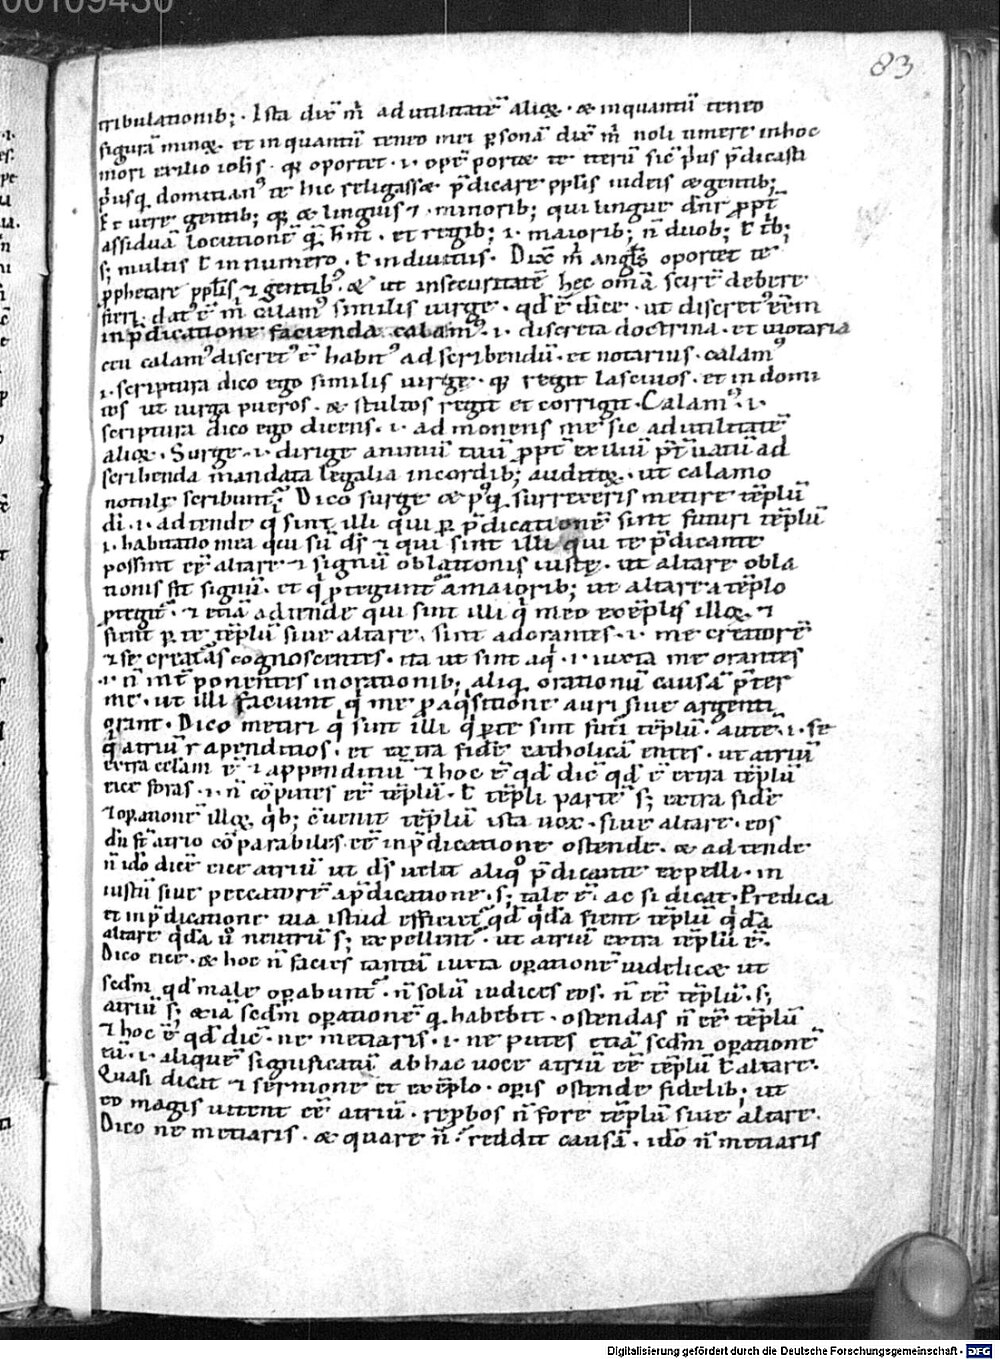 00109430
83
tribulationib; Ista dix̄ m̄ ad utilitatē alioꝝ · & inquantū teneo
figurā minoꝝ · et in quantū teneo mei ꝑsonā dix̄ m̄ noli timere in hoc
mori exilio ioh̄s · q̄ oportet · i · opꝰ portee te iterū sic p̄us p̄dicasti
p̄usq̄ domitianꝰ te hic religasset p̄dicare ppl̄is iudeis & gentib;
assiduā locutionē · et regib; i · maiorib; n̄ duob; t̄ t̄b;
s; multis t̄ innumero · t̄ indiuitus · Dix̄ m̄ angl̄s oportet te
pphetare ppl̄is ⁊ gentibꝰ · & ut in securitatē hec om̄a scirē debere
fieri · dat̄ ē m̄ calamꝰ similis uirgę · qd̄ ē dic̄e · ut discretꝰ eēm
in p̄dicatione facienda · calamꝰ · i · discreta doctrina · et notaria
ceu calamꝰ discretꝰ ē habitꝰ ad scribendū · et notarius · calamꝰ
· i · scriptura dico ego similis uirgę · q̄ regit lasciuos · et indomi
tos ut uirga pueros · & stultos regit et corrigit · Calamꝰ · i ·
scriptura dico ego dicens · i · ad monens me sic ad utilitatē
alioꝝ · Surge · i · dirige animū tuū ꝓpt̄ exiliū p̄t̄uatū ad
scribenda mandata legalia in cordib; auditoꝝ · ut calamo
notulę scribunt̄ · Dico surge & p̄q̄ surrexeris metire tēplū
dī · i · adtende q̄ sint illi qui ꝑ p̄dicationē sint futuri tēplū
· i · habitatio mea qui sū ds̄ ⁊ qui sint illi qui te p̄dicante
possint eē altare ⁊ signū oblationis iustę · ut altare obla
tionis est signū · et q̄ ꝓtegunt̄ a maiorib; ut altare a tēplo
ꝓtegit̄ · ⁊ etiā adtende qui sint illi q̄ meo exēplis illoꝝ ⁊
fient ꝑ te tēplū siue altare · sint adorantes · i · me creatorē
⁊ se creatas cognoscentes · ita ut sint aq̄ · i · iuxta me orantes
· i · n̄ mt̄ ponentes in orationib; aliq̄ orationū causā p̄ter
me · ut illi faciunt q̄ me ꝓ aq̄sitione auri siue argenti
orant · Dico metiri q̄ sint illi q̄ ꝑ te sint futī tēplū · autē · i · se
q̄ atriū ⁊ apenditios · et extra fidē catholicā entes · ut atriū
extra celam ē ⁊ appenditiū ⁊ hoc ē qd̄ dic̄ qd̄ ē extra tēplū
eice foras · i · n̄ cōputes eē tēplū · t̄ tēpli partē s; extra fidē
⁊ oꝑationē illoꝝ q̄b; c̄uenit tēplū ista uox · siue altare · eos
dn̄ st̄ atrio cōparabiles eē in p̄dicatione ostende · & adtende
n̄ ido dicē eice atriū ut ds̄ uelit aliqͦ p̄dicante expelli · in
iustū siue peccatorē a p̄dicatione · s; tale ē ac si dicat · Predica
et in p̄dicatione tua istud efficiet̄ qd̄ q̄dā fient tēplū q̄dā
altare q̄dā ū neutrū s; expellent̄ · ut atriū extra tēplū ē ·
Dico eice · & hoc n̄ facies tantū iuxta oꝑationē uidelicet ut
scdm̄ qd̄ male oꝑabunt̄ · n̄ solū iudices eos · n̄ eē tēplū · s;
atriū s; etiā scdm̄ oꝑationē q̄ habebit · ostendas n̄ eē tēplū
⁊ hoc ē qd̄ dic̄ · ne metiaris · i · ne putes etiā scdm̄ oꝑationē
eū · i · aliquē significatū ab hac uoce atriū eē tēplū t̄ altare ·
Quasi dicat ⁊ sermone et exēplo · oꝑis ostende fidelib; ut
eo magis uitent eē atriū · reꝓbos n̄ fore tēplū siue altare ·
Dico ne metiaris · & quare n̄ · reddit causā · ido n̄ metiaris
Digitalisierung gefördert durch die Deutsche Forschungsgemeinschaft - DFG